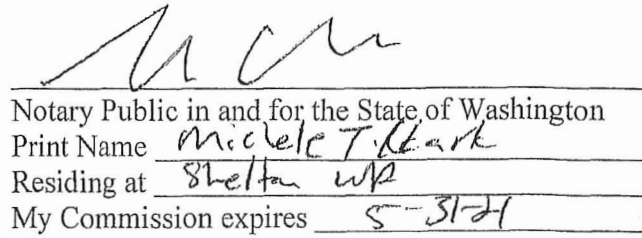 Notary Public in and for the State of Washington
Print Name Michele T.
Residing at Shelton WA
My Commission expires 5-31-21